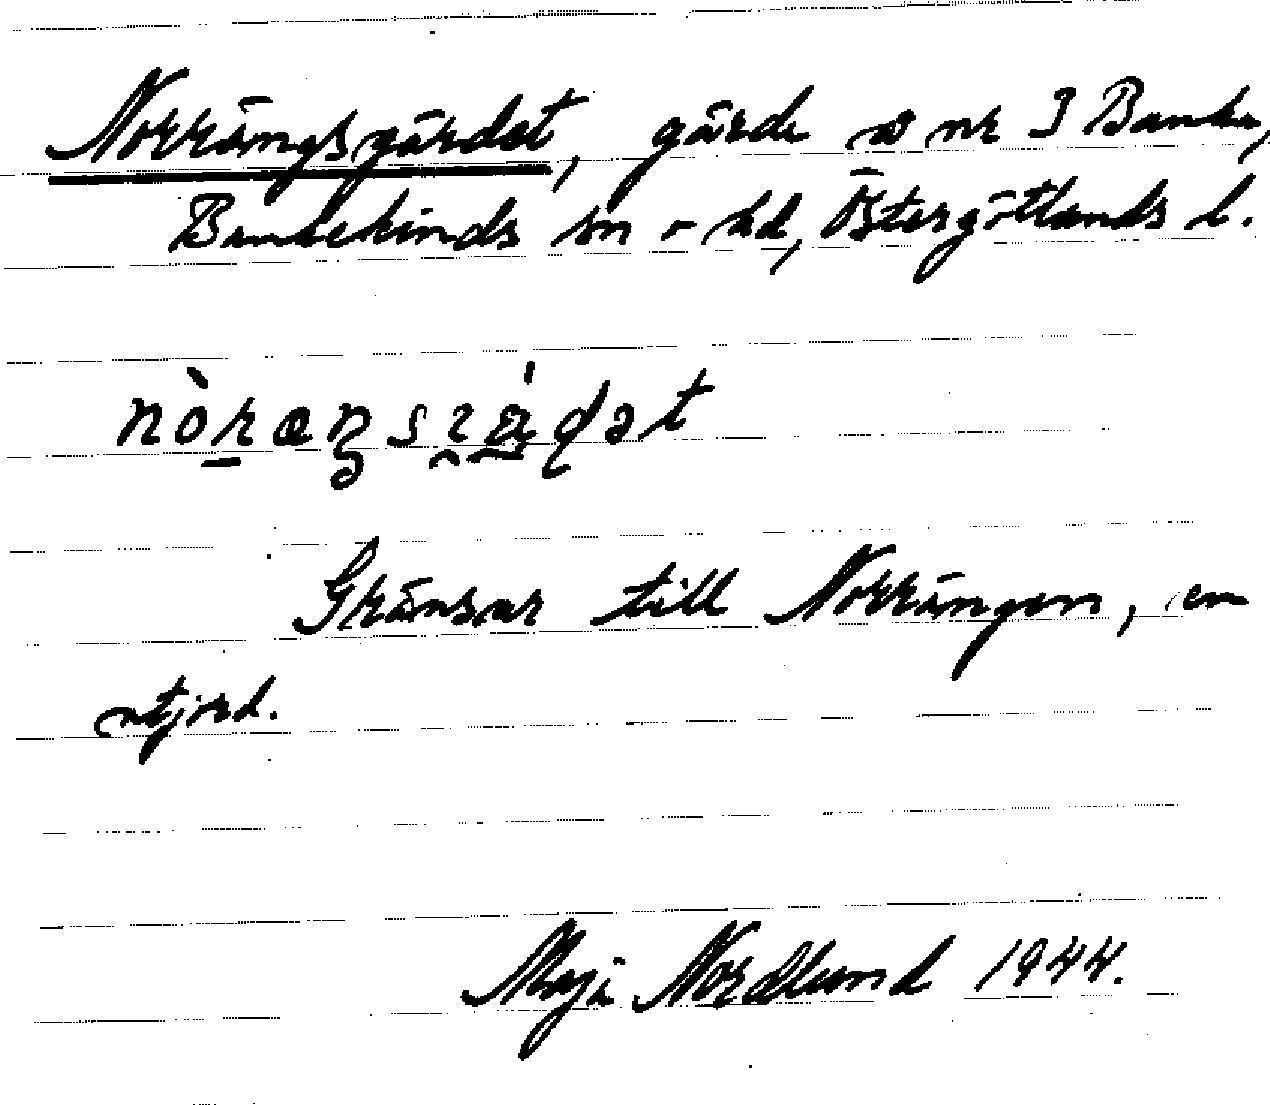 Norrängsgärdet, gärde å nr 3 Banke,
Bankekinds sn o hd, Östergötlands l.
Gränsar till Norrängen, en
utjord.
Maja Nordlund 1944.